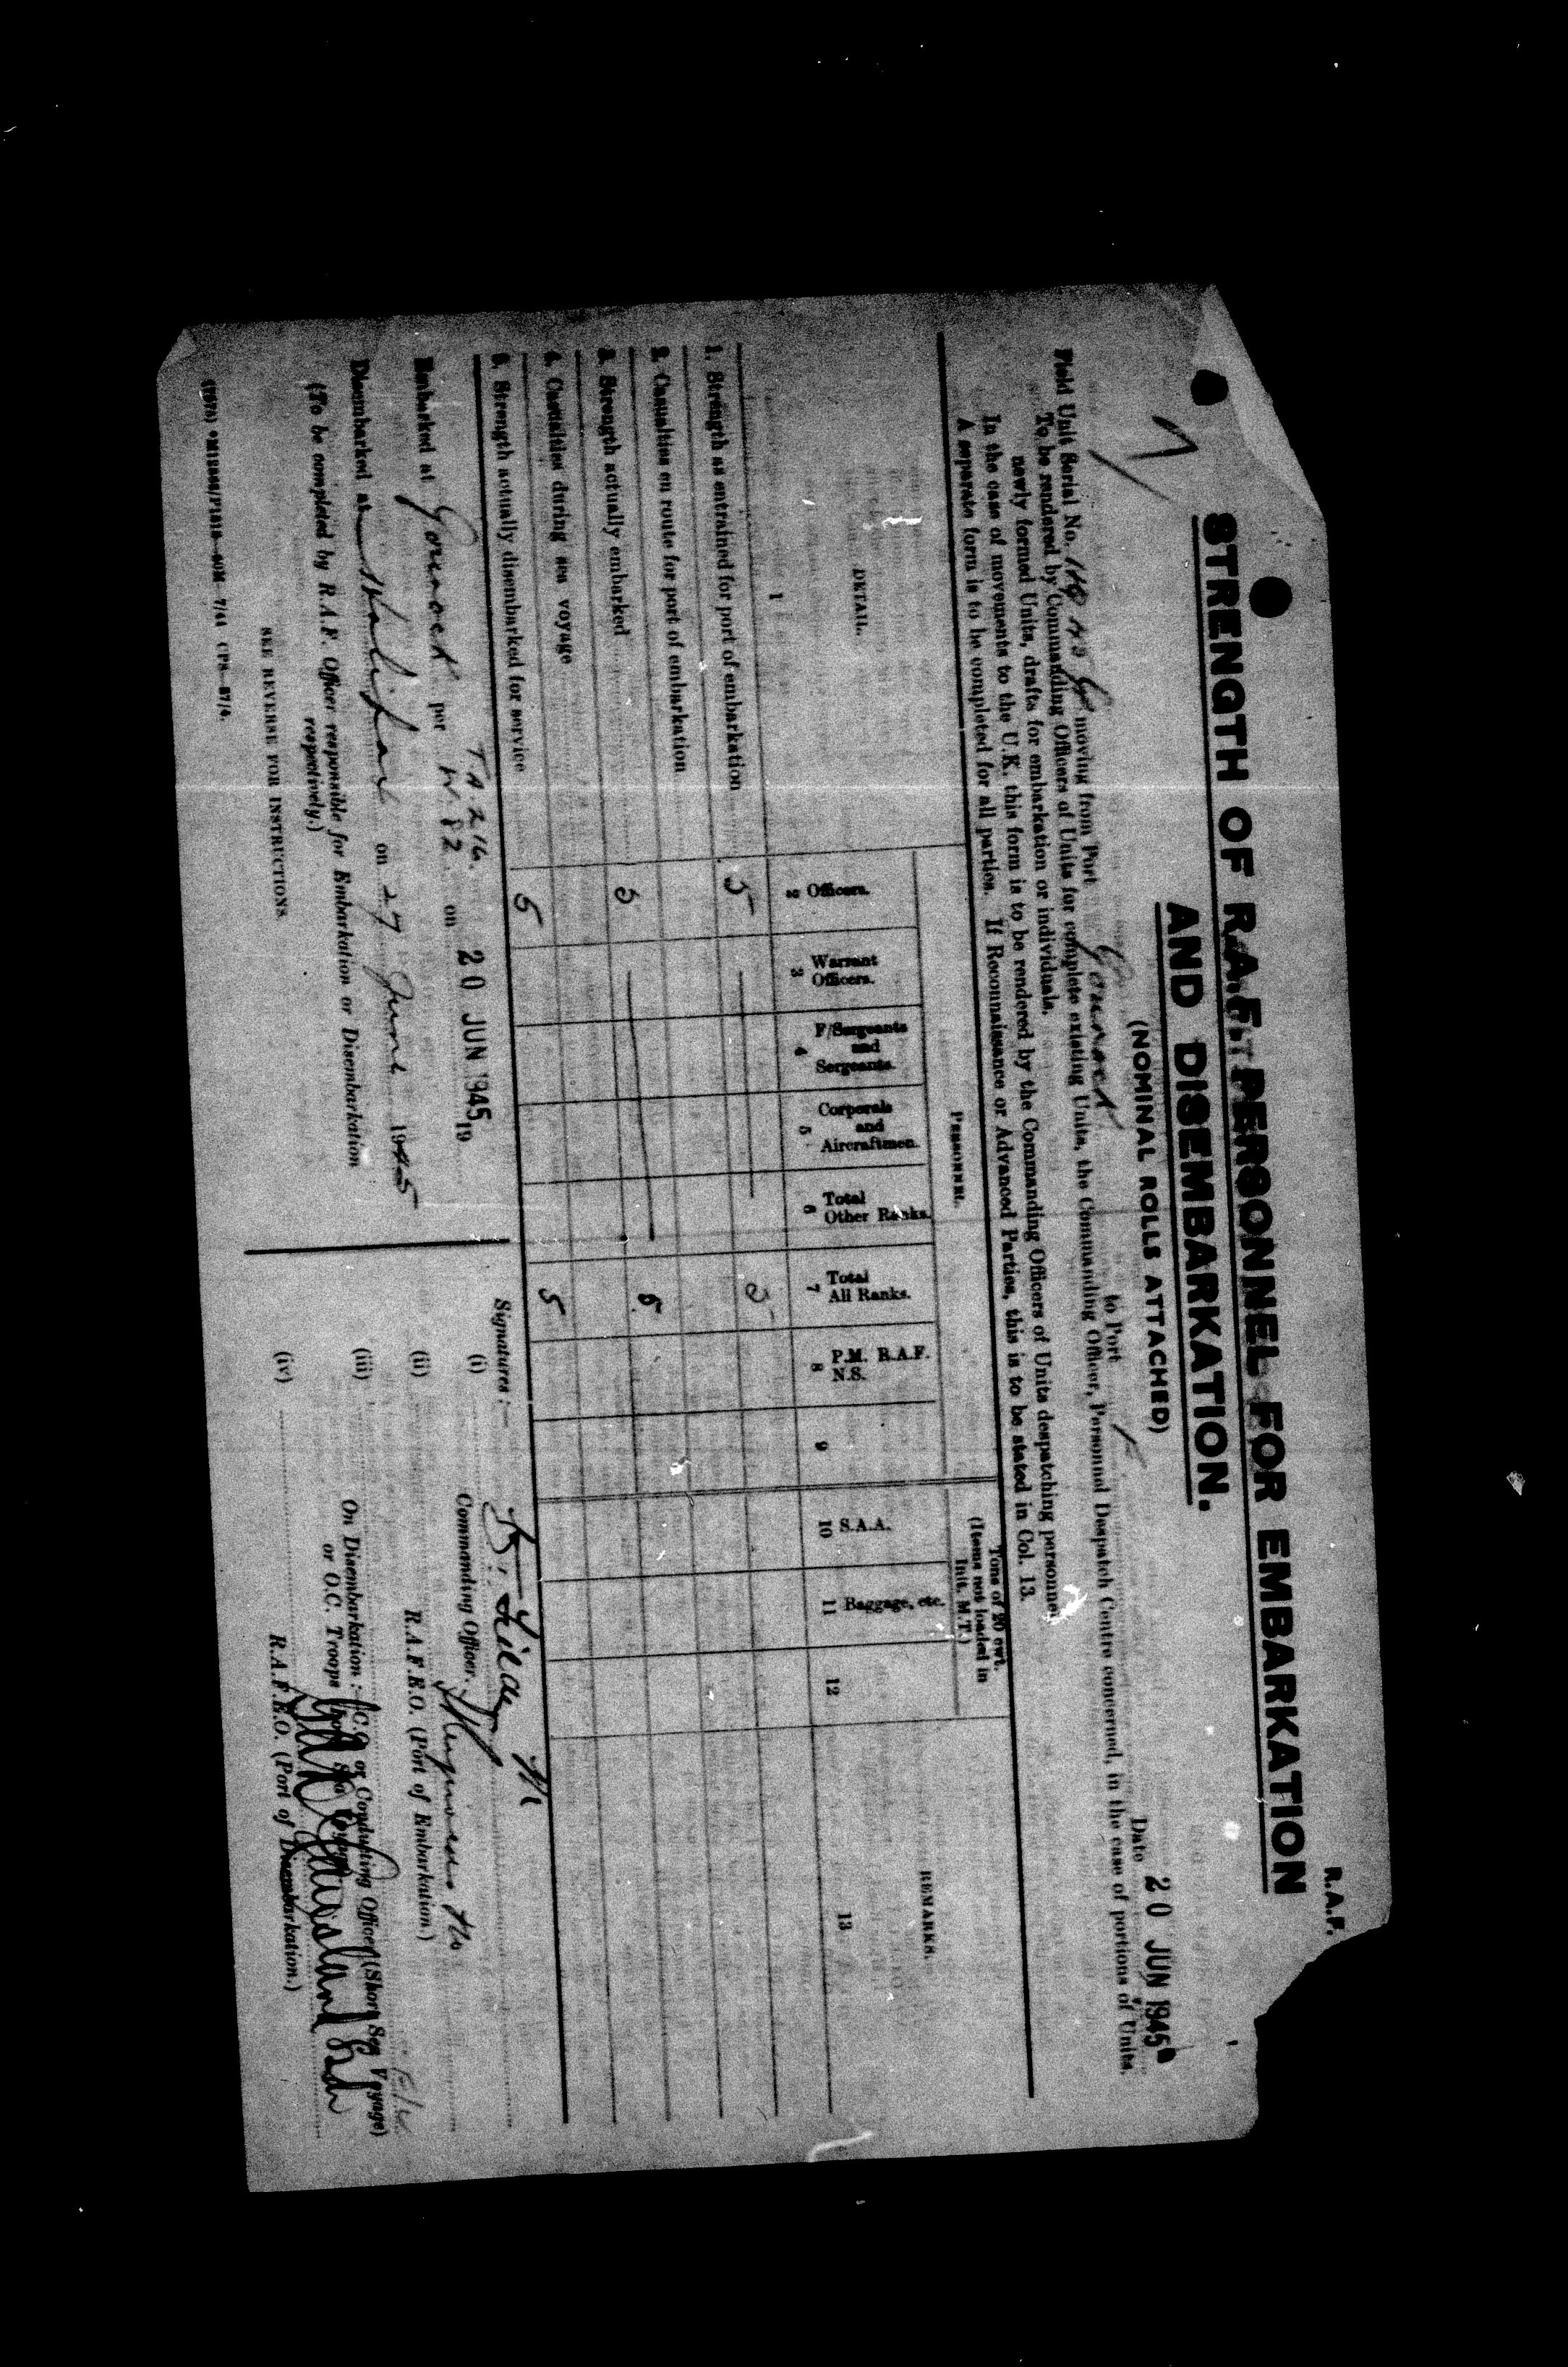 R.A.F.
STRENGTH OF R.A.F. PERSONNEL FOR EMBARKATION
AND DISEMBARKATION.
(NOMINAL ROLLS ATTACHED)
Date 20 JUN 1945
Field Unit Serial No. moving from Port Gourock to Port
To be rendered by Commanding Officers of Units for complete existing Units, the Commanding Officer, Personnel Despatch Centre concerned, in the case of portions of Units,
newly formed Units, drafts for embarkation or individuals.
In the case of movements to the U.K. this form is to be rendered by the Commanding Officers of Units despatching personnel
A separate form is to be completed for all parties. If Reconnaissance or Advanced Parties, this is to be stated in Col. 13.
PERSONNEL.
Tons of 20 cwt.
(Items not loaded in
Init. M.T.)
DETAIL.
Officers.
Warrant Officers.
F/Sergeants and Sergeants.
Corporals and Aircraftmen.
Total Other Ranks.
Total All Ranks.
P.M. R.A.F. N.S.
S.A.A.
Baggage, etc.
REMARKS.
1 2 3 4 5 6 7 8 9 10 11 12 13
1. Strength as entrained for port of embarkation 5 5
2. Casualties en route for port of embarkation
3. Strength actually embarked 5 5
4. Casualties during sea voyage
5. Strength actually disembarked for service 5 5
Embarked at Gourock per TA 216. W.82 on 20 JUN 1945 19
Disembarked at Halifax on 27 June 1945
(To be completed by R.A.F. Officer responsible for Embarkation or Disembarkation
respectively.)
SEE REVERSE FOR INSTRUCTIONS.
Signatures :—
(i)
Commanding Officer.
(ii)
R.A.F.E.O. (Port of Embarkation.)
(iii)
On Disembarkation :—C.O. or Conducting Officer (Short Sea Voyage)
or O.C. Troops
(iv)
R.A.F.E.O. (Port of Disembarkation.)